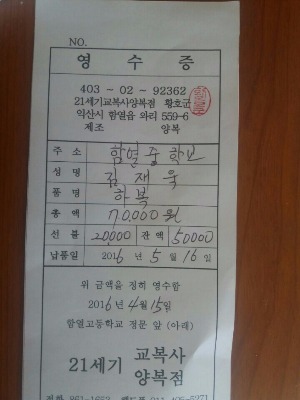 NO.
영 수 증
403 - 02 - 92362
21세기교복사양복점 황호균
익산시 함열읍 와리 559-6
제조 양복
주 소 함열중학교
성 명 김재욱
품 명 하복
총 액 70,000원
선 불 20000 잔 액 50000
납품일 2016 년 5 월 16 일
위 금액을 정히 영수함
2016 년 4 월 15 일
함열고등학교 정문 앞 (아래)
21세기 교복사
양복점
전화 861-1662